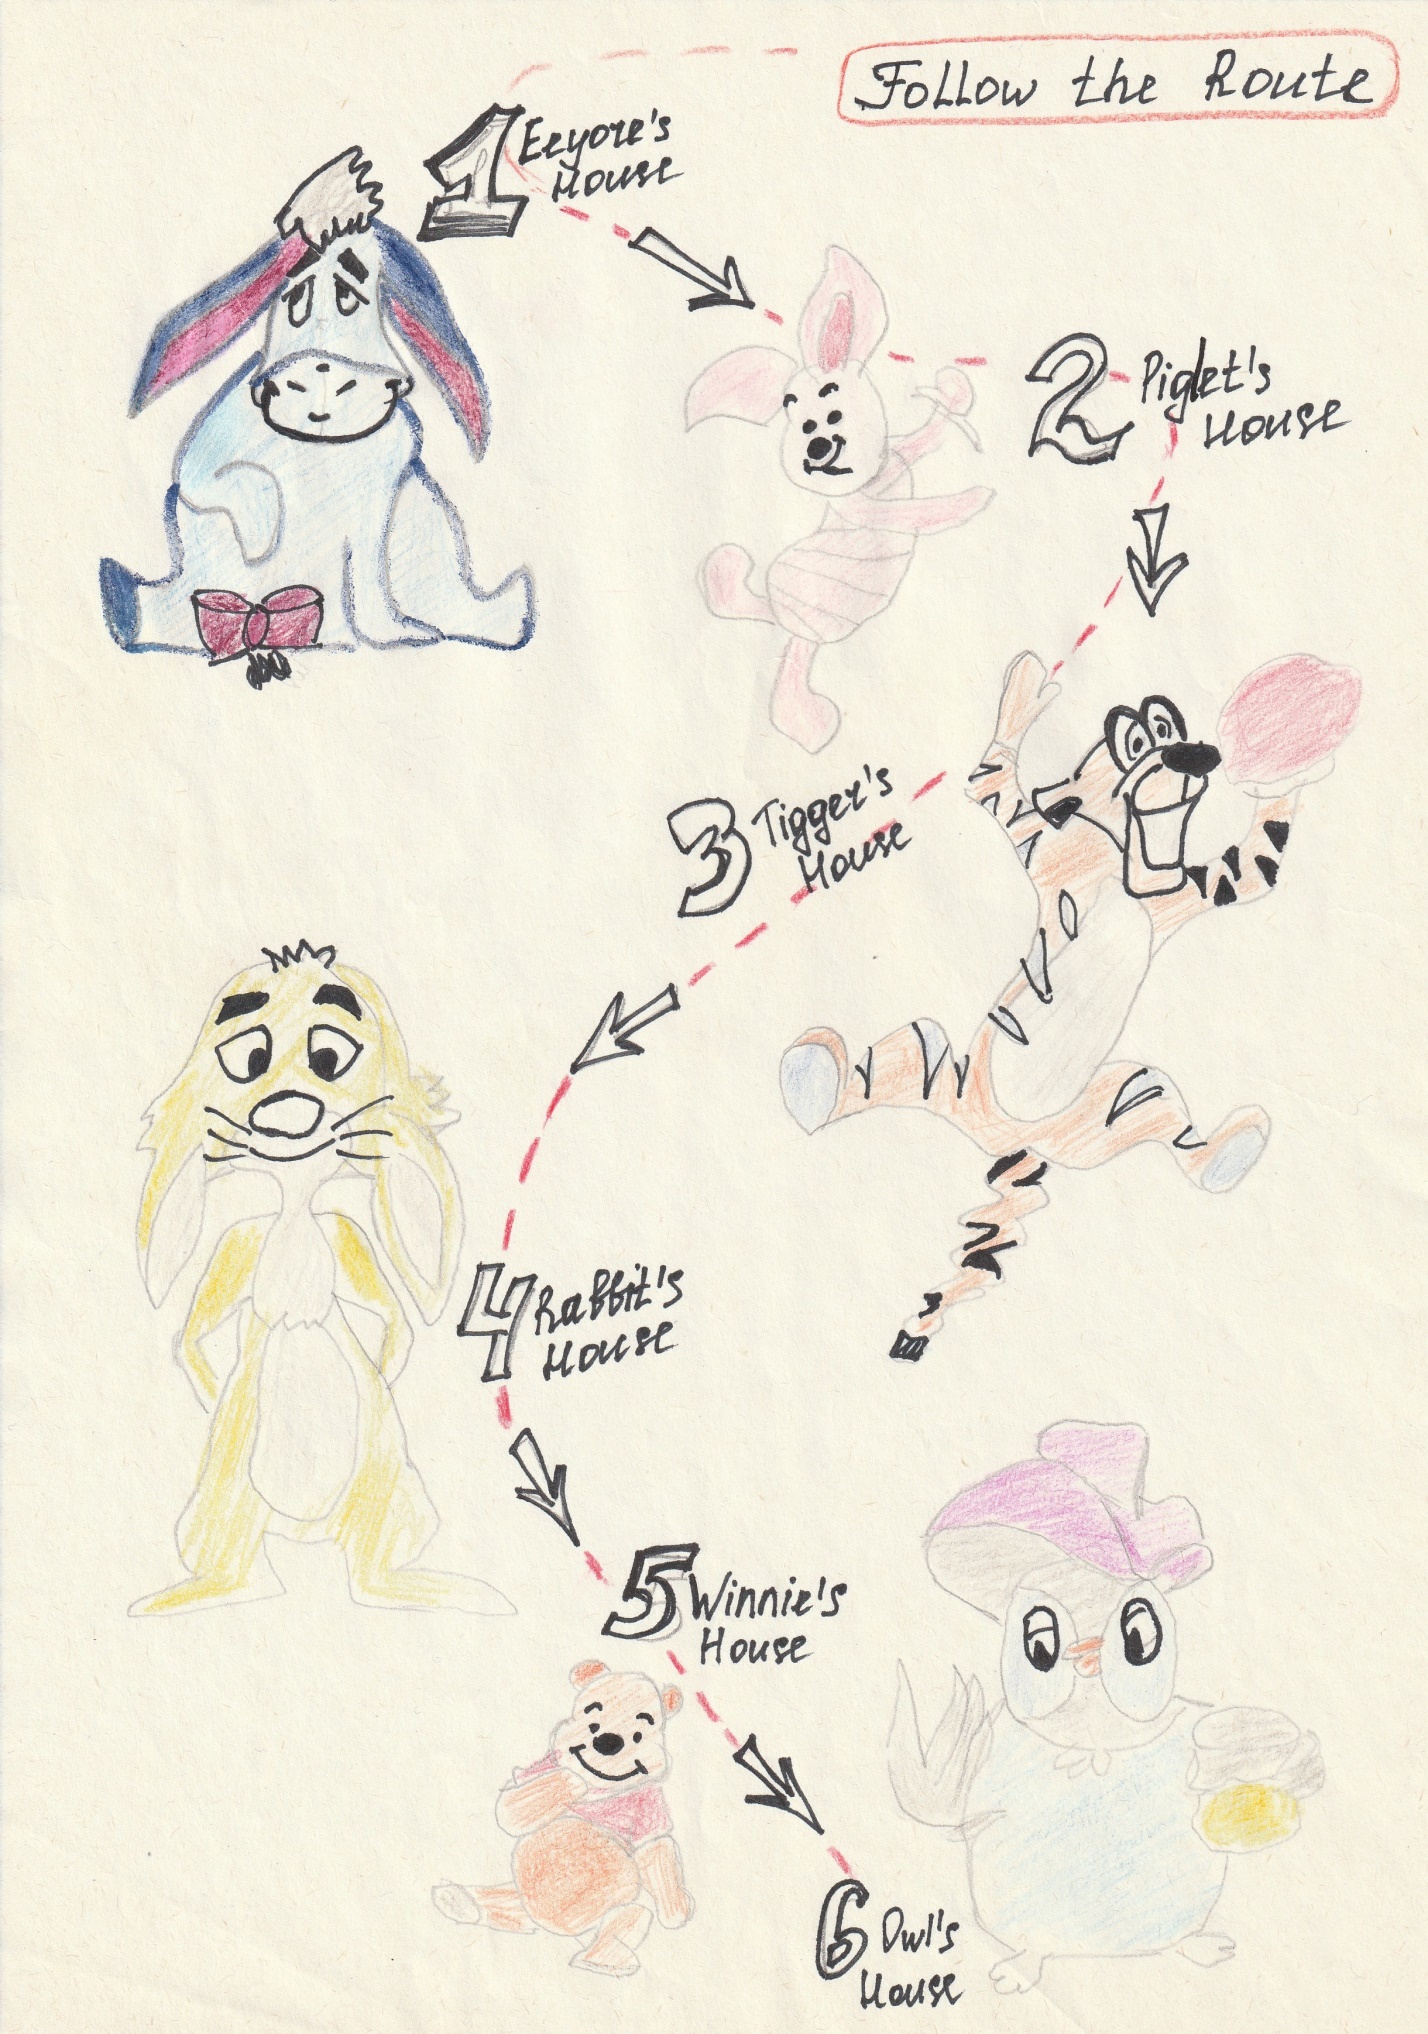 Follow the Route
1 Eeyore's
House
2 Piglet's
House
3 Tigger's
House
4 Rabbit's
House
5 Winnie's
House
6 Owl's
House